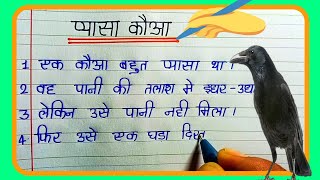 प्यासा कौआ
1 एक कौआ बहुत प्यासा था।
2 वह पानी की तलाश मे इधर-उध
3 लेकिन उसे पानी नही मिला।
4 फिर उसे एक घडा दिख